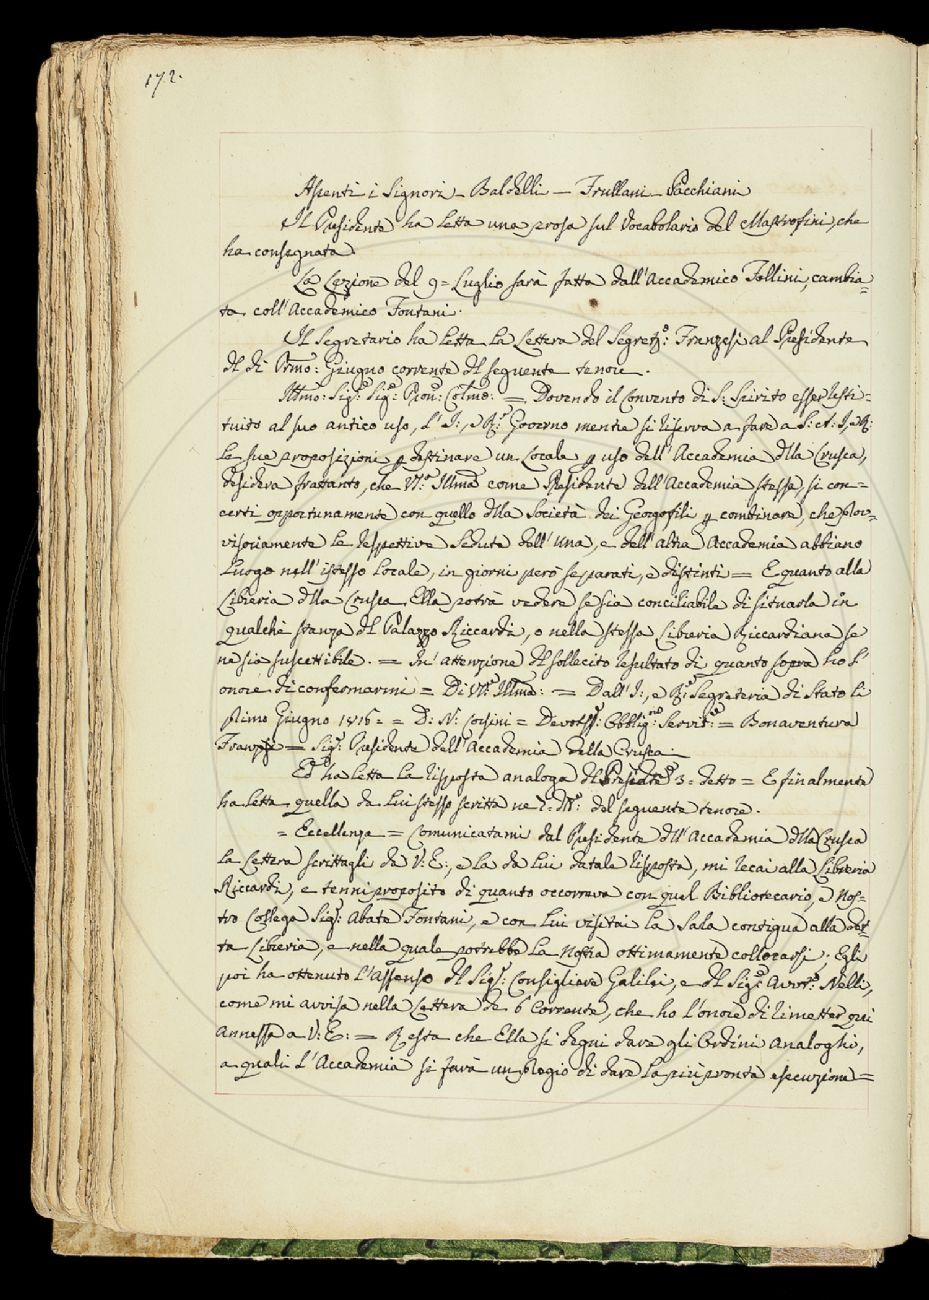 172.
Assenti i Signori - Baldelli - Frullani - Pacchiani
Il Presidente ha letta una prosa sul Vocabolario del Mastrofini, che
ha consegnata
La Lezione del 9= Luglio sarà fatta dall'Accademico Follini, cambia=
ta coll'Accademico Fontani.
Il Segretario ha letta la Lettera del Segret.º: Franzesi al Presidente
del dì Primo: Giugno corrente del seguente tenore.
Illmo: Sig.e Sig.e Pron: Colmo: = Dovendo il Convento di S: Spirito esser resti=
tuito al suo antico uso, L'I:, e R: Governo mentre si riserva a fare a S: A: I, e R:
le sue proposizioni p destinare un Locale p uso dell'Accademia della Crusca,
desidera frattanto, che VS: Illma come Presidente dell'Accademia stessa, si con=
certi opportunamente con quello della Società dei Georgofili p combinare, che prov=
visoriamente le respettive Sedute dell'una, e dell'altra Accademia abbiano
Luogo nell'istesso Locale, in giorni però separati, e distinti = E quanto alla
Libreria della Crusca Ella potrà vedere se sia conciliabile di situarla in
qualche stanza del Palazzo Riccardi, o nella stessa Libreria Riccardiana se
ne sia suscettibile. = In attenzione del sollecito resultato di quanto sopra ho l'
onore di confermarmi = Di VS: Illma: = Dall'I:, e R: Segreteria di Stato li
primo Giugno 1816 = = D: N: Corsini = Devotss: Obblig:mo Servit:e = Bonaventura
Franzesi = Sig.e Presidente dell'Accademia della Crusca.
Ed ha letta la risposta analoga del Presidte 3= detto = E finalmente
ha letta quella da lui stesso scritta ne' del seguente tenore.
= Eccellenza = Comunicatami dal Presidente dell'Accademia della Crusca
la Lettera scrittagli da V: E:, e la da lui datale risposta, mi recai alla Libreria
Riccardi, e tenni proposito di quanto occorreva con quel Bibliotecario, e Nos=
tro Collega Sig.e Abate Fontani, e con lui visitai la Sala contigua alla det=
ta Libreria, e nella quale potrebbe la Nostra ottimamente collocarsi; Egli
poi ha ottenuto l'assenso del Sig.e: Consigliere Galilei, e del Sig.e Avvo.º: Nelli,
come mi avvisa nella Lettera de 6 Corrente, che ho l'onore di rimetter qui
annessa a V: E: = Resta che Ella si degni dare gli Ordini analoghi,
a quali L'Accademia si farà un pregio di dare la più pronta esecuzione =